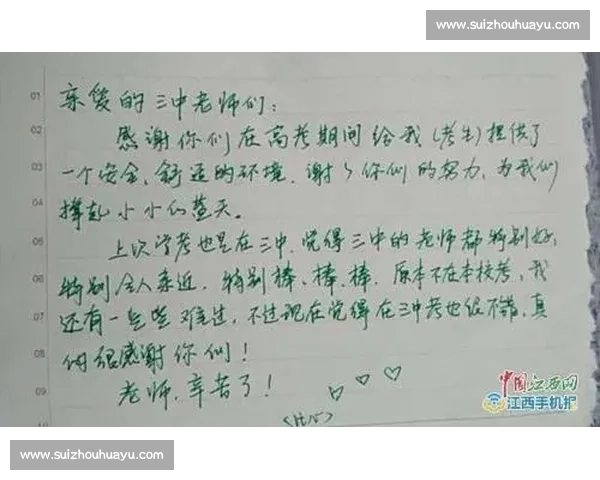 www.suizhouhuayu.com
01 亲爱的三中老师们：
02 感谢你们在高考期间给我(考生)提供了
03 一个安全、舒适的环境.谢谢你们的努力,为我们
04 撑起小小的蓝天。
05 上次学考也是在三中.觉得三中的老师都特别好,
06 特别令人亲近,特别棒、棒、棒.原本不在本校考,我
07 还有一些些难过,不过现在觉得在三中考也很不错,真
08 的很感谢你们!
09 老师,辛苦了! ♡ ♡ ♡
10 (比心)
中国江西网
江西手机报
www.suizhouhuayu.com